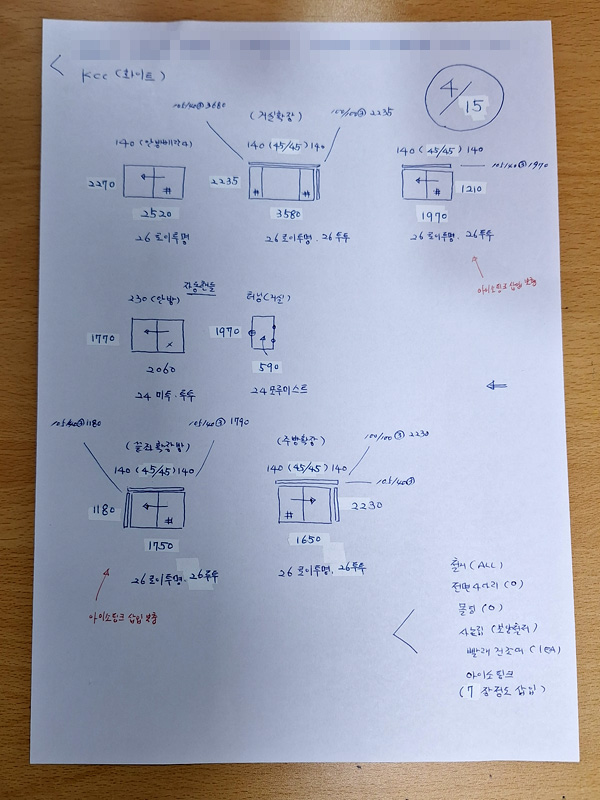 KCC (화이트)
4/15
105/40③ 3680
(거실확장)
100/100③ 2235
140 (안방베란다)
140 (45/45) 140
140 (45/45) 140
105/40③ 1970
2270
2235
1210
#
#
#
#
2520
3580
1970
26 로이투명
26 로이투명. 26 투투
26 로이투명. 26투투
아이소핑크 삽입 맞춤
자동핸들
230 (안방)
터닝 (거실)
1770
1970
2060
590
24 미슥. 투투
24 모루미스트
105/40③ 1180
105/40③ 1790
(끝좌확장방)
(주방확장)
100/100③ 2230
140 (45/45) 140
140 (45/45) 140
105/40③
1180
2230
#
#
1750
1650
26 로이투명. 26투투
26 로이투명. 26투투
아이소핑크 삽입 맞춤
철거 (ALL)
전면사다리 (O)
물럽 (O)
빨래 건조대 (1EA)
아이소핑크
(7 장정도 삽입)